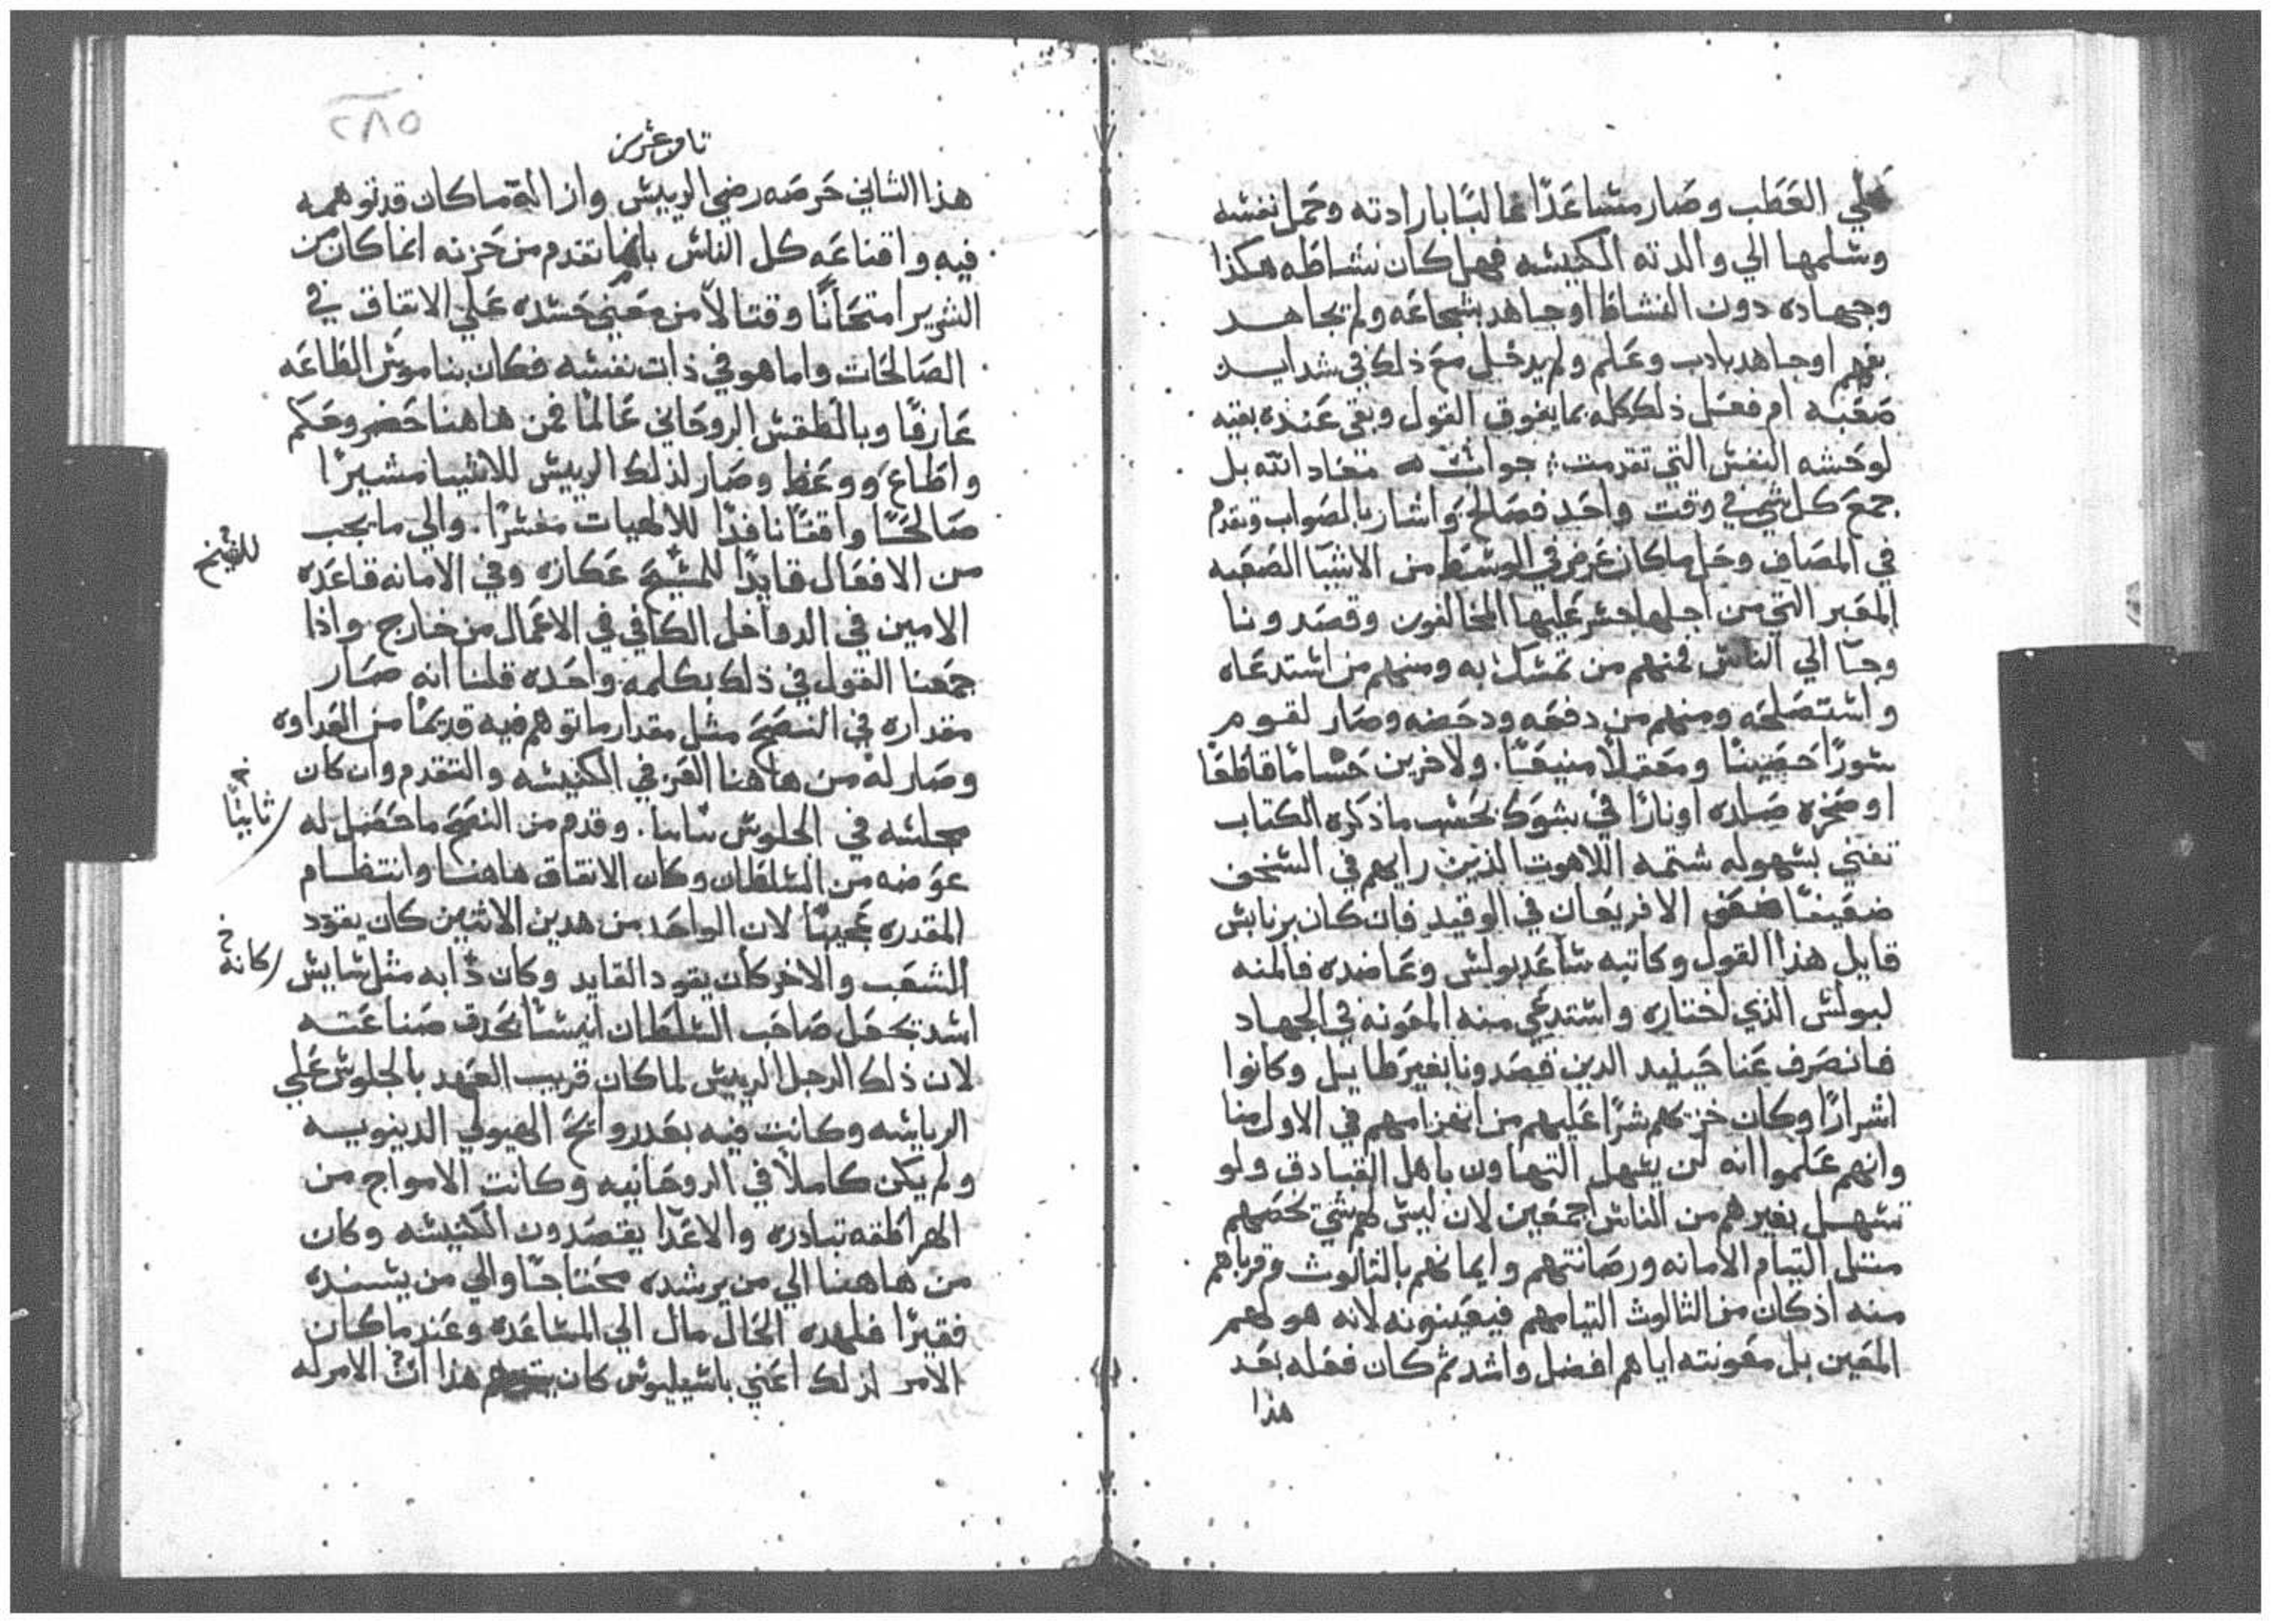 علي العطب وصار مساعدًا غالبًا بارادته وحمل نفسه
وسلمها الي والدته الكنيسه فهل كان نشاطه هكذا
وجهاده دون النشاط اوجاهد بشجاعه ولم يجاهد
بفهم اوجاهد بادب وعلم ولم يدخل مع ذلك في شدايد
صعبه ام فعل ذلك كله بما يفوق القول وبقي عنده بقيه
لوحشه النفس التي تقدمت جوابٌ معاد الله بل
جمع كل شي في وقت واحد فصالح واشار بالصواب وتقدم
في المصاف وحل ماكان عرض في الوسط من الاشيا الصعبه
المعبر التي من اجلها اجسر عليها المخالفون وقصدونا
وجا الي الناس فمنهم من تمسك به ومنهم من استدعاه
واستصلحه ومنهم من دفعه ودحضه وصار لقوم
سورًا حصينًا ومعقلاً منيعًا. ولاخرين حسامًا قاطعًا
اوصخره صلده اونارًا في شوك بحسب ماذكره الكتاب
تفني بسهوله شتمه اللاهوت الذين رايهم في السخف
ضعيفًا الافريعان في الوقيد فان كان برنابس
قايل هذا القول وكاتبه ساعد بولس وعاضده فالمنه
لبولس الذي اختاره واستدعي منه المعونه في الجهاد
فانصرف عنا حينيد الدين قصدونا بغير طايل وكانوا
اشرارًا وكان خزيهم شرًا عليهم من انهزامهم في الاول منا
وانهم علموا انه لن يسهل التهاون باهل القبادق ولو
تسهل بغيرهم من الناس اجمعين لان ليس لهم شي يخصهم
مثل التيام الامانه ورصانتهم وايمانهم بالثالوث وقرباهم
منه اذ كان من الثالوث التيامهم فيعينونه لانه هو لهم
المعين بل معونته اياهم افضل واشد ثم كان فعله بعد
هذا
٢٨٥
هذا الثاني حرصه رضي الرييس وازالة ماكان قد توهمه
فيه واقناعه كل الناس بانما تقدم من حزنه انما كان من
الشرير امتحانًا وقتالاً من معني حسده علي الاتفاق في
الصالحات واما هو في ذات نفسه فكان بناموس الطاعه
عارفًا وبالطقس الروحاني عالمًا فمن هاهنا حضر وحكم
واطاع ووعظ وصار لذلك الرييس للاشيا مشيرًا
صالحًا واقفًا نافدًا للالهيات مفسرًا. والي مايجب
من الافعال قايدًا للمسيح عكازه وفي الامانه قاعده
للشيخ
الامين في الدواخل الكافي في الاعمال من خارج. واذا
جمعنا القول في ذلك بكلمه واحده قلنا انه صار
مقداره في النصح مثل مقدار ماتوهم فيه قديمًا من العداوه
وصار له من هاهنا العز في الكنيسه والتقدم وان كان
مجلسه في الجلوس ساسا. وقدم من النصح ماحصل له
ثانيًا
عوضه من السلطان وكان الاتفاق هاهنا وانتظام
المقدره عجيبًا لان الواحد من هدين الاثنين كان يقود
الشعب والاخر كان يقود القايد وكان دابه مثل سايس
كانه
اسد بحعل صاحب السلطان انيسًا بحدق صناعته
لان ذلك الرجل الرييس لما كان قريب العهد بالجلوس علي
الرياسه وكانت فيه بعد روايح الهيولي الدينويه
ولم يكن كاملاً في الروحانيه وكانت الامواج من
الهراطقه تبادره والاعدا يقصدون الكنيسه وكان
من هاهنا الي من يرشده محتاجًا والي من يسنده
فقيرًا فلهده الحال مال الي المساعده وعند ماكان
الامر لذلك اعني باسيليوس كان هذا ان الامر له